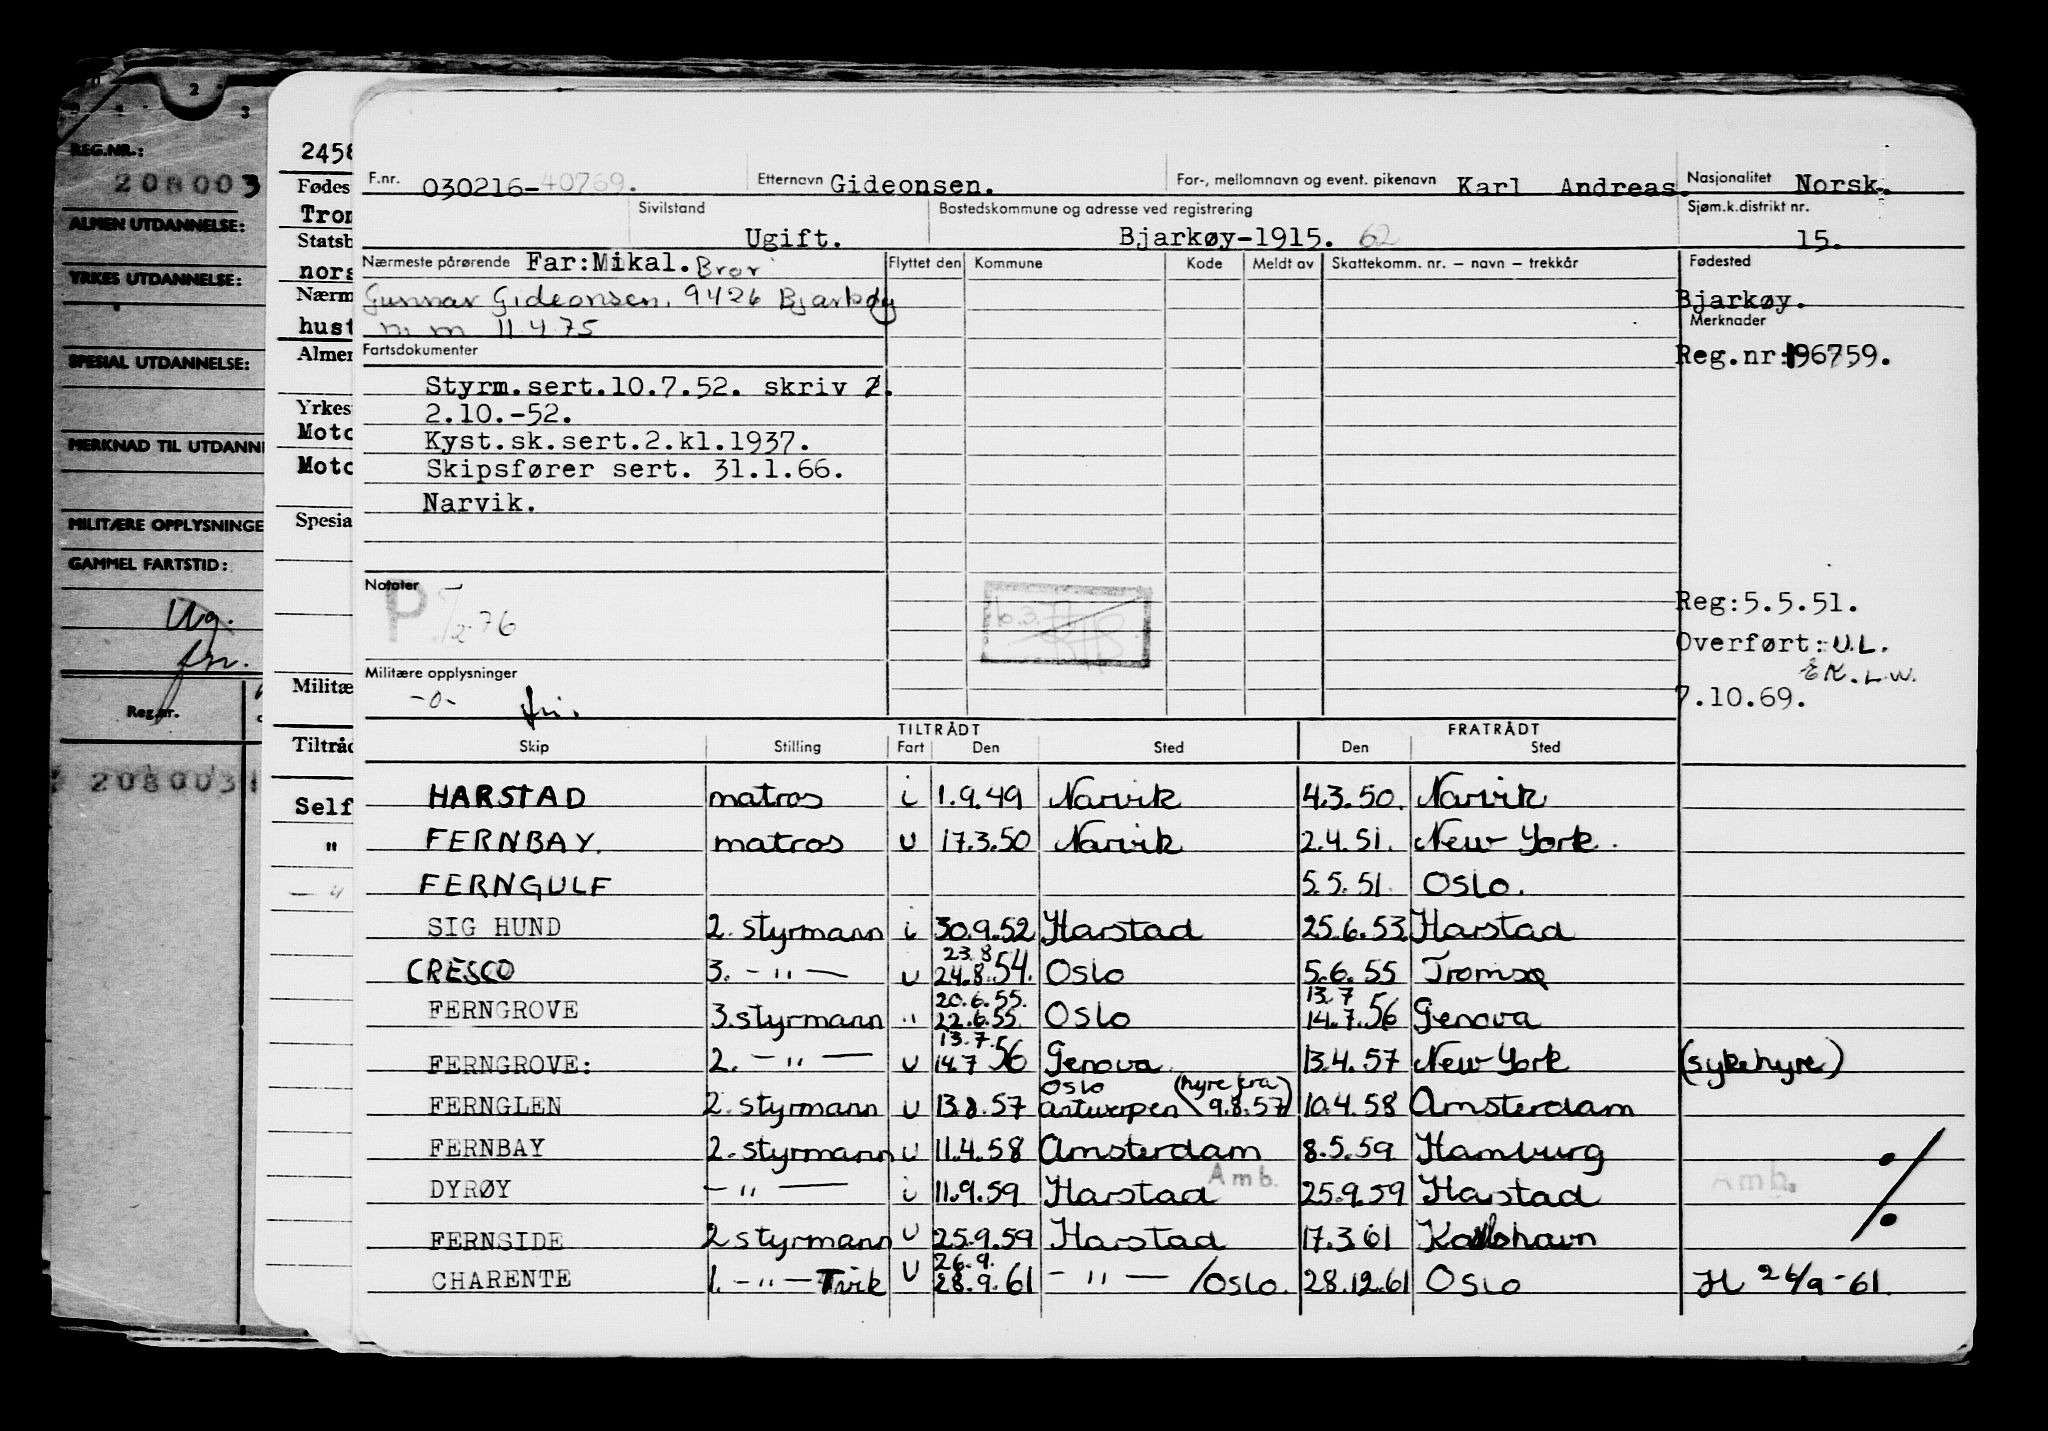 2
3
REG.NR.:
208003
ALMEN UTDANNELSE:
YRKES UTDANNELSE:
SPESIAL UTDANNELSE:
MERKNAD TIL UTDANN
MILITÆRE OPPLYSNINGE
GAMMEL FARTSTID:
Ug.
fri.
Reg.nr.
2080031
2458
Fødes
Tron
Statsb
nors
Nærm
hust
Almer
Yrkes
Moto
Moto
Spesia
Militæ
Tiltråd
Self
"
— " 
F.nr. 030216-40769. Etternavn Gideonsen. For-, mellomnavn og event. pikenavn Karl Andreas. Nasjonalitet Norsk.
Sivilstand Ugift. Bostedskommune og adresse ved registrering Bjarkøy-1915. 62 Sjøm.k.distrikt nr. 15.
Nærmeste pårørende Far:Mikal. Bror Flyttet den Kommune Kode Meldt av Skattekomm. nr. – navn – trekkår Fødested
Gunnar Gideonsen, 9426 Bjarkøy Bjarkøy.
n.m 11.4.75 Merknader
Fartsdokumenter Reg.nr:196759.
Styrm.sert.10.7.52. skriv 2.
2.10.-52.
Kyst.sk.sert.2.kl.1937.
Skipsfører sert. 31.1.66.
Narvik.
Notater
P 76
16.3.77
Reg:5.5.51.
Overført:-U.L.
EK. L.W.
7.10.69.
Militære opplysninger
-0- fri.
TILTRÅDT FRATRÅDT
Skip Stilling Fart Den Sted Den Sted
HARSTAD matros i 1.9.49 Narvik 4.3.50. Narvik
FERNBAY. matros U 17.3.50 Narvik 2.4.51. New York.
FERNGULF 5.5.51. Oslo.
SIG HUND 2. styrmann i 30.9.52 Harstad 25.6.53. Harstad
23.8
CRESCO 3. - " - U 24.8.54. Oslo 5.6.55 Tromsø
20.6.55. 13.7
FERNGROVE 3. styrmann " 22.6.55. Oslo 14.7.56 Genova
13.7.
FERNGROVE: 2. - " - U 14.7 56 Genova 13.4.57 New York (sykehyre)
Oslo (hyre fra
FERNGLEN 2. styrmann U 13.8.57 Antwerpen 9.8.57) 10.4.58 Amsterdam
FERNBAY 2. styrmann U 11.4.58 Amsterdam 8.5.59 Hamburg
DYRØY - " - i 11.9.59 Harstad Amb. 25.9.59 Harstad Amb.
FERNSIDE 2 styrmann U 25.9.59 Harstad 17.3.61
26.9.
CHARENTE 1. - " - Tvik U 28.9.61 - " - /Oslo. 28.12.61 Oslo H 26/9-61.